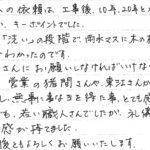 への依頼は、工事後、10年、20年と
、キーポイントでした。
「洗い」の段階で、雨水マスに木の
わかったのです。
さんにお願いしなければいけな
営業の猪間さんや、東江さんが
し、無事に事なきを得た事、とても
も、若い職人さんでしたが、礼儀
感が持てました。
後ともよろしくお願いいたします。